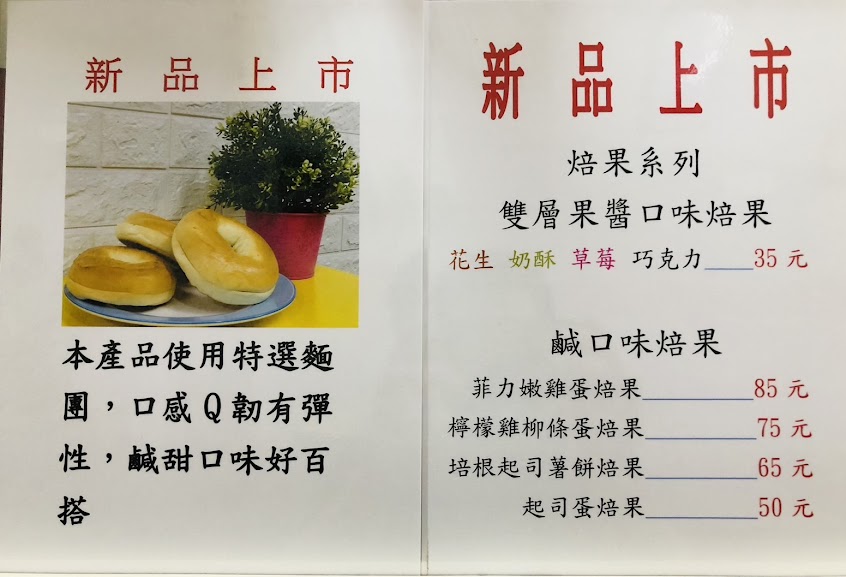 新品上市
本產品使用特選麵
團，口感Q韌有彈
性，鹹甜口味好百
搭
新品上市
焙果系列
雙層果醬口味焙果
花生 奶酥 草莓 巧克力____35元
鹹口味焙果
菲力嫩雞蛋焙果_________85元
檸檬雞柳條蛋焙果_________75元
培根起司薯餅焙果_________65元
起司蛋焙果_________50元